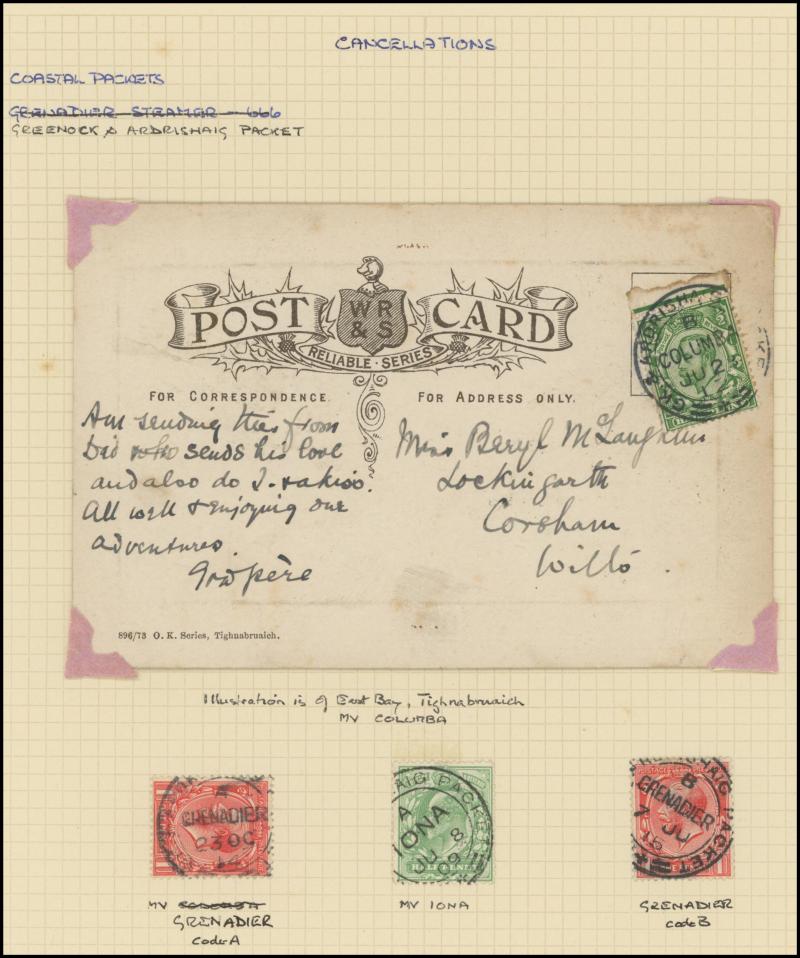 CANCELLATIONS
COASTAL PACKETS
GRENADIER STEAMER - 666
GREENOCK & ARDRISHAIG PACKET
POST CARD
W R & S
RELIABLE · SERIES
FOR CORRESPONDENCE.
FOR ADDRESS ONLY.
Am sending this from
Dad who sends his love
and also do I - & a kiss.
All well & enjoying our
adventures.
Miss Beryl McLaughlin
Lockingarth
Corsham
Wilts.
GK & ARDRISHA
B
COLUMB
JU 2
896/73 O. K. Series, Tighnabruaich.
Illustration is of East Bay, Tighnabruaich
MV COLUMBA
A
GRENADIER
23 OC
14
AIG PACKET
A
IONA
JU 8
9
HALF PENNY
RISHAIG PACKET
B
GRENADIER
7 JU
16
MV
GRENADIER
Code A
MV IONA
GRENADIER
Code B